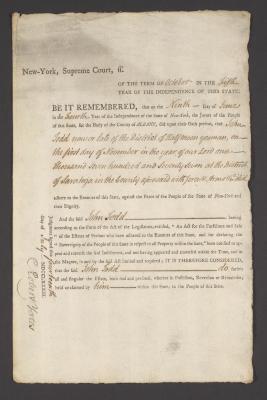 New-York, Supreme Court, ss.
OF THE TERM OF October IN THE Fifth
YEAR OF THE INDEPENDENCE OF THIS STATE.
BE IT REMEMBERED, that on the Ninth Day of June
in the Fourth Year of the Independence of the State of New-York, the Jurors of the People
of this State, for the Body of the County of ALBANY, did upon their Oath present, that John
Todd yeoman late of the District of Halfmoon yeoman, on
the first day of November in the year of our Lord one
thousand seven hundred and seventy seven at the District
of Saratoga in the County aforesaid with force & arms &c. did
adhere to the Enemies of this State, against the Peace of the People of the State of New-York and
their Dignity.
And the said John Todd having
according to the Form of the Act of the Legislature, entitled, "An Act for the Forfeiture and Sale
of the Estates of Persons who have adhered to the Enemies of this State, and for declaring the
"Sovereignty of the People of this State in respect to all Property within the same,"
the said Indictment, and not having
the Manner, in and by the said Act limited and required; IT IS THEREFORE CONSIDERED,
that the said John Todd do forfeit
all and singular the Estate, both real and personal, whether in Possession, Reversion or Remainder,
held or claimed by him within this State, to the People of this State.
Judgment signed the
day of July MDCCLXXXIII